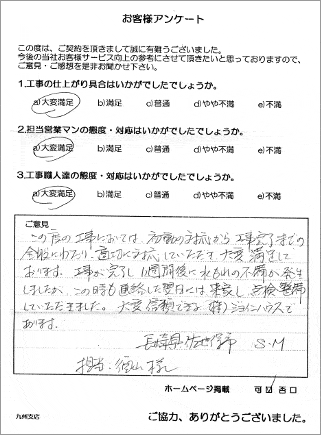 お客様アンケート
この度は、ご契約を頂きまして誠に有難うございました。
今後の当社お客様サービス向上の参考にさせて頂きたいと思っておりますので、
ご意見・ご感想を是非お聞かせ下さい。
1.工事の仕上がり具合はいかがでしたでしょうか。
a)大変満足 b)満足 c)普通 d)やや不満 e)不満
2.担当営業マンの態度・対応はいかがでしたでしょうか。
a)大変満足 b)満足 c)普通 d)やや不満 e)不満
3.工事職人達の態度・対応はいかがでしたでしょうか。
a)大変満足 b)満足 c)普通 d)やや不満 e)不満
ご意見
この度の工事においては、初動の対応から工事完了までの
全般にわたり、適切に対応していただき、大変満足して
おります。工事が完了し1週間後に水もれの不備が発生
しましたが、この時も連絡した翌日には来宅し、点検整備
していただきました。大変信頼できる(株)ジョインハウスで
あります。
長崎県佐世保市 S.M
担当 徳山様
ホームページ掲載 可 否
九州支店
ご協力、ありがとうございました。